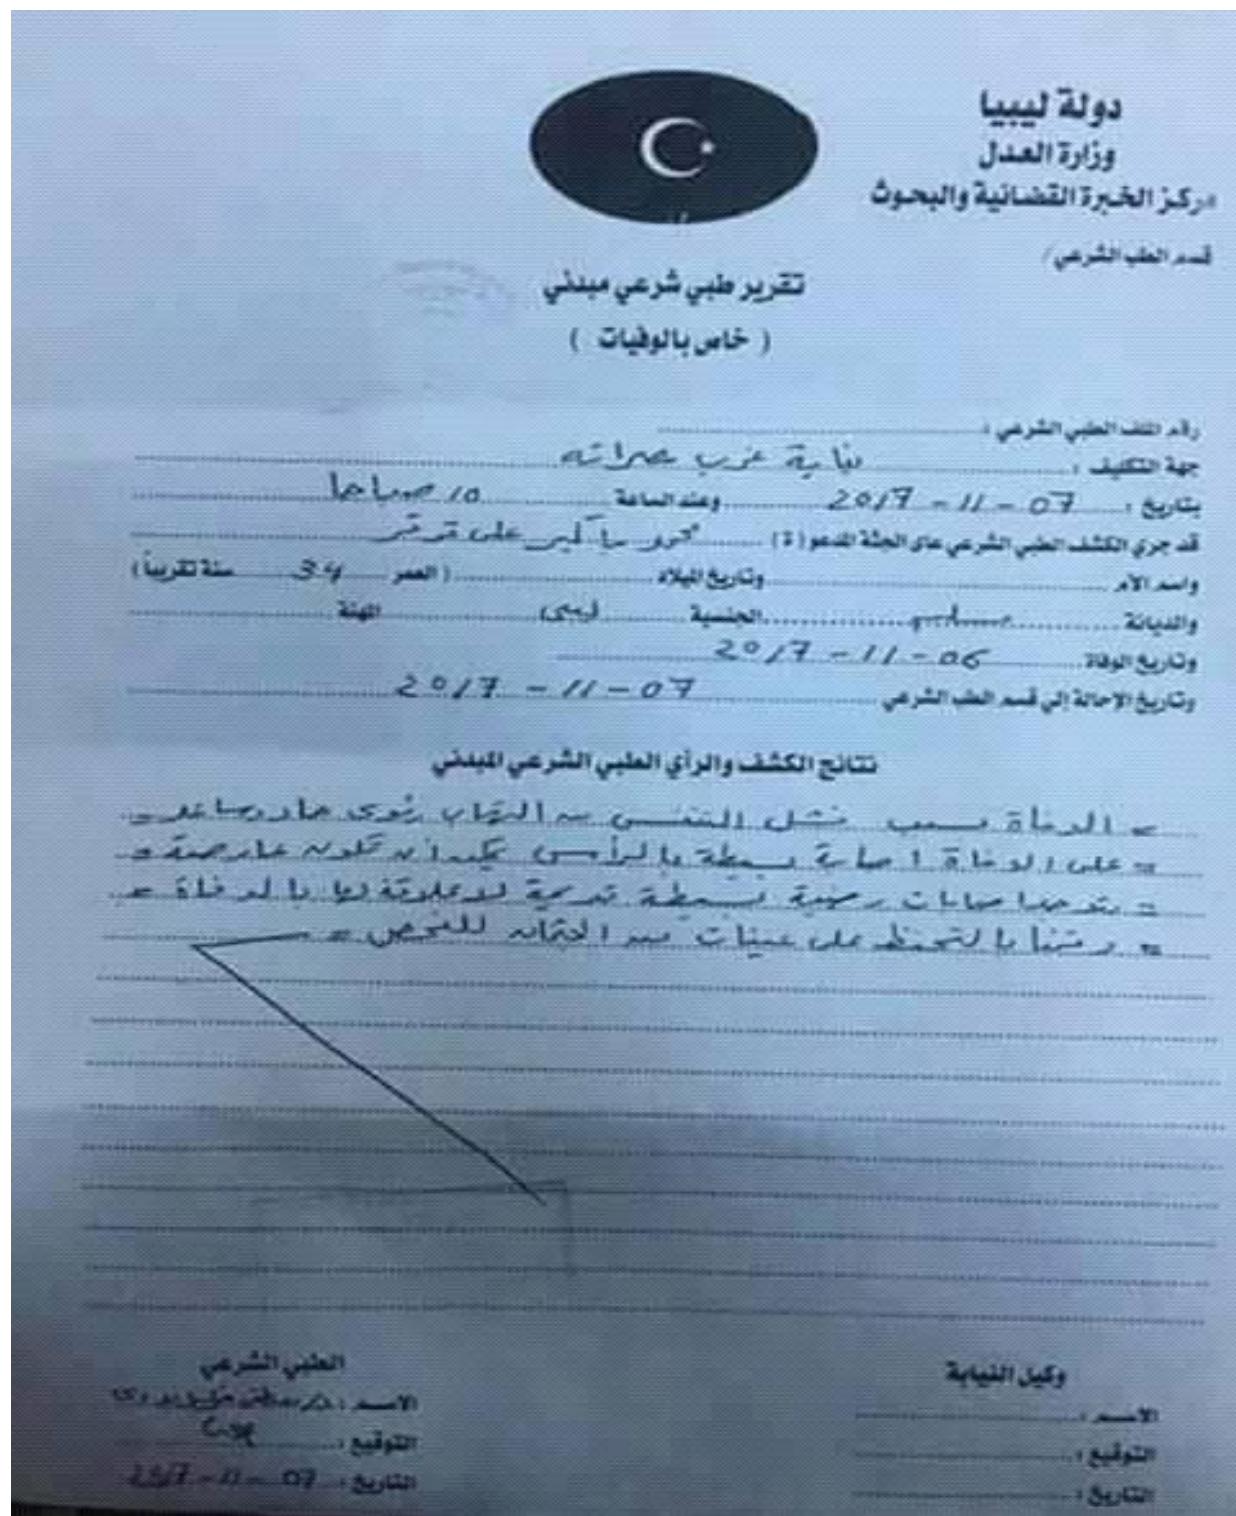 دولة ليبيا
وزارة العدل
مركز الخبرة القضائية والبحوث
قسم الطب الشرعي/
تقرير طبي شرعي مبدئي
( خاص بالوفيات )
رقم الملف الطبي الشرعي :
جهة التكليف : نيابة غرب مصراته
بتاريخ : 07-11-2017 وعند الساعة 10 صباحا
قد جرى الكشف الطبي الشرعي على الجثة المدعو (ة) على
واسم الأم وتاريخ الميلاد ( العمر 34 سنة تقريباً )
والديانة مسلم الجنسية ليبي المهنة
وتاريخ الوفاة 06-11-2017
وتاريخ الإحالة إلى قسم الطب الشرعي 07-11-2017
نتائج الكشف والرأي الطبي الشرعي المبدئي
= الوفاة بسبب فشل التنفس من التهاب رئوي حاد وساعد =
= على الوفاة اصابة بسيطة بالرأس يمكن ان تكون عارضة =
= توجد اصابات رضية بسيطة قديمة لا علاقة لها بالوفاة =
= وقمنا بالتحفظ على عينات من الجثمان للفحص =
وكيل النيابة
الاسم :
التوقيع :
التاريخ :
الطبي الشرعي
الاسم :
التوقيع :
التاريخ : 07-11-2017